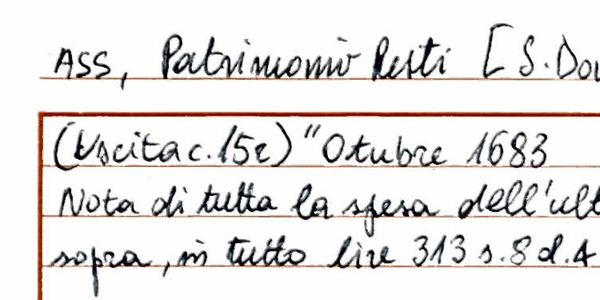 ASS, Patrimonio Resti [S. Dou
(Uscita c. 15r) "Otubre 1683
Nota di tutta la spesa dell'ult
sopra, in tutto lire 313 s. 8 d. 4